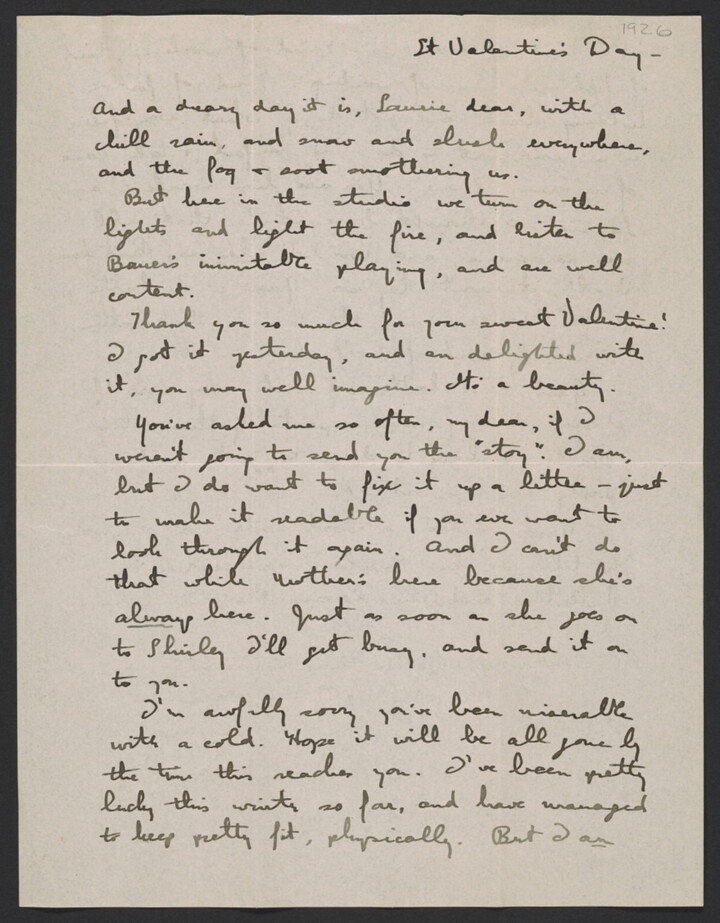 1926
St Valentine's Day –
And a dreary day it is, Laurie dear, with a
chill rain, and snow and slush everywhere,
and the fog + soot smothering us.
But here in the studio we turn on the
lights and light the fire, and listen to
Bauer's inimitable playing, and are well
content.
Thank you so much for your sweet Valentine!
I got it yesterday, and am delighted with
it, you may well imagine. It's a beauty.
You've asked me so often, my dear, if I
weren't going to send you the "story". I am,
but I do want to fix it up a little – just
to make it readable if you ever want to
look through it again. And I can't do
that while Mother's here because she's
always here. Just as soon as she goes on
to Shirley I'll get busy, and send it on
to you.
I'm awfully sorry you've been miserable
with a cold. Hope it will be all gone by
the time this reaches you. I've been pretty
lucky this winter so far, and have managed
to keep pretty fit, physically. But I am